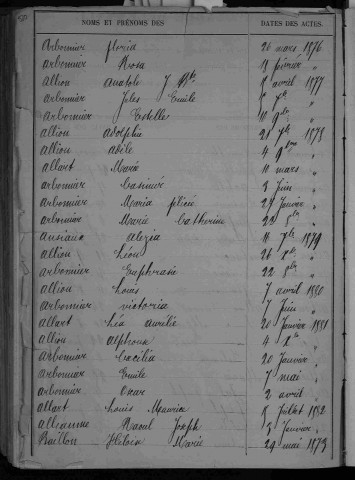 NOMS ET PRÉNOMS DES DATES DES ACTES.
Arbonnier floria 26 mars 1876
arbonnier Rosa 18 février "
allion anatole J Bte 8 avril 1877
arbonnier Jules Emile 8 7bre "
arbonnier Estelle 10 9bre "
allion adolphe 21 7bre 1878
allion adèle 4 "
allart Marie 11 mars "
arbonnier Casimir 3 Juin "
arbonnier Maria 27 Janvier "
arbonnier Marie Catherine 23 8bre "
alezia 11 7bre 1879
allion Léon 26 "
arbonnier Euphrasie 22 8bre "
allion Louis 7 avril 1880
arbonnier victoria 7 Juin "
allart Léa aurélie 20 Janvier 1881
allion alphonse 4 "
arbonnier Cécilia 20 Janvier "
arbonnier Emile 7 mai "
arbonnier Oscar 2 avril "
allart Louis Maurice 8 Juillet 1882
allianne Raoul Joseph 3 Janvier "
Baillon Héloïse Marie 24 mai 1873